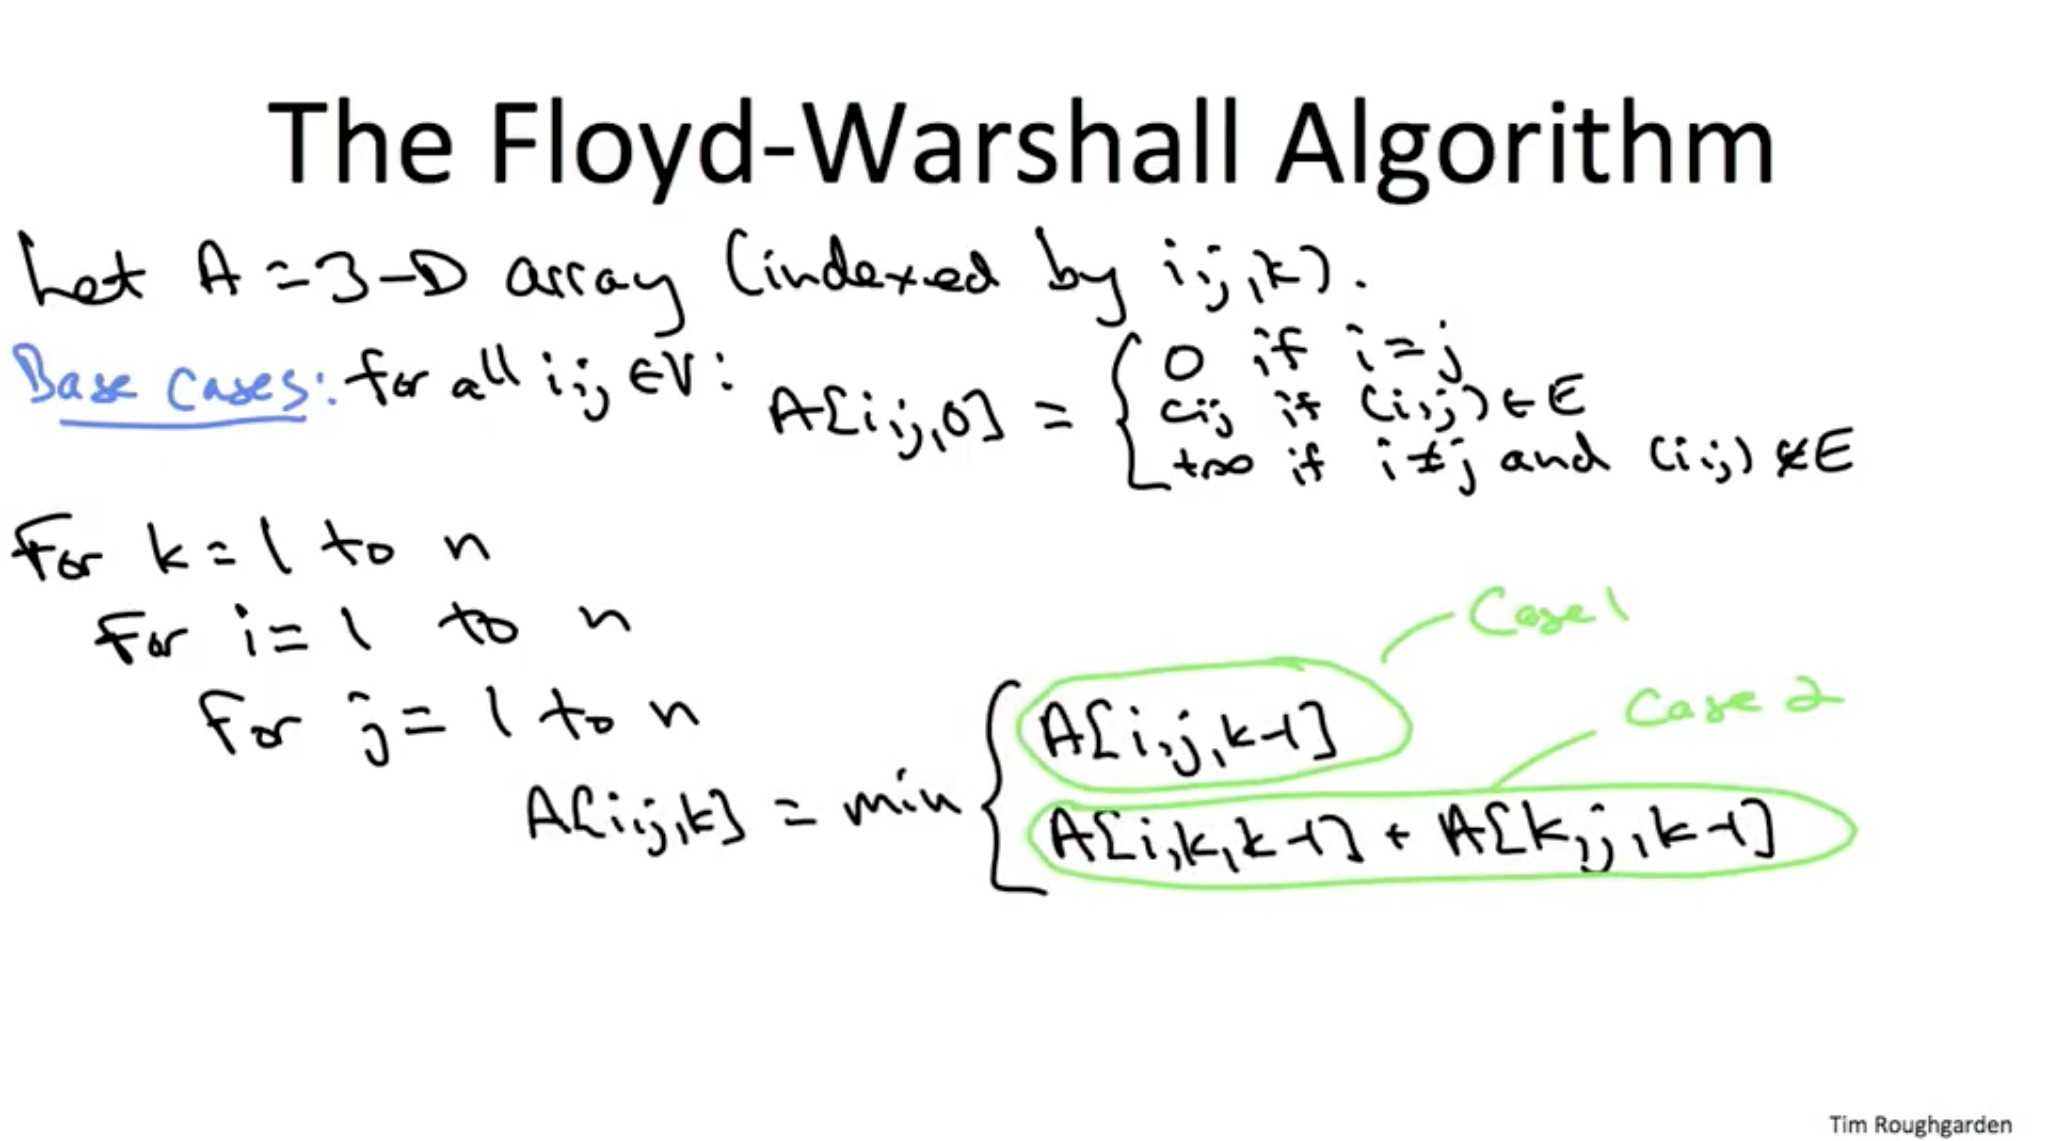 The Floyd-Warshall Algorithm
Let A = 3-D array (indexed by i,j,k).
Base Cases: For all i,j ∈ V: A[i,j,0] = { 0 if i=j
cij if (i,j) ∈ E
+∞ if i≠j and (i,j) ∉ E
For k=1 to n
For i=1 to n
Case 1
For j=1 to n
Case 2
A[i,j,k] = min { A[i,j,k-1]
A[i,k,k-1] + A[k,j,k-1]
Tim Roughgarden